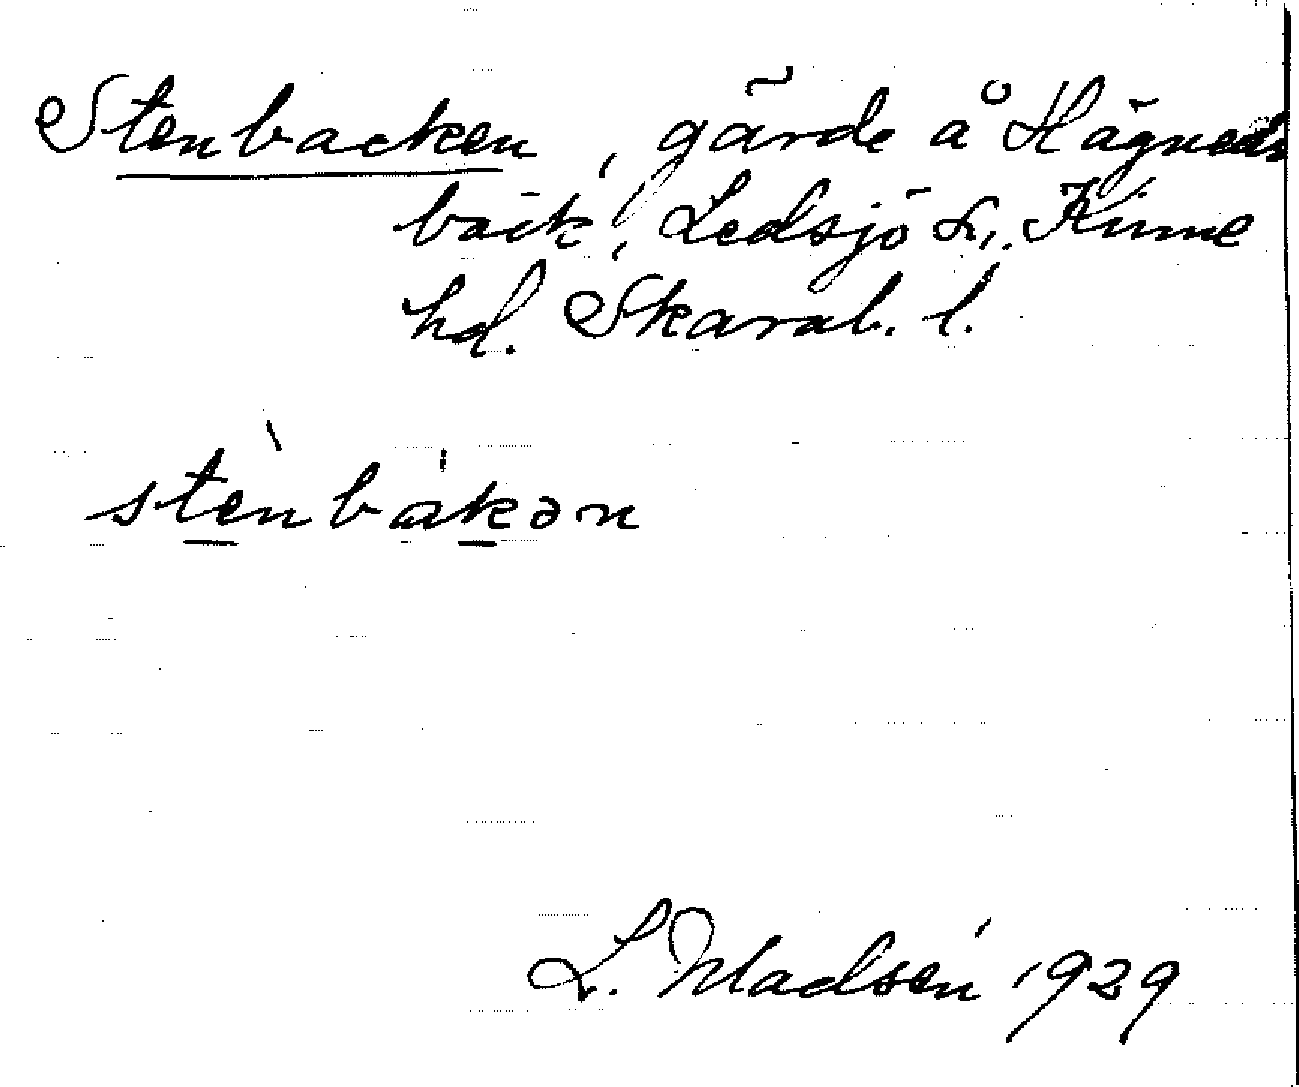 Stenbacken, gärde å Hägneds
bäck, Ledsjö s., Kinne
hd. Skarab. l.
stènbákən
L. Madsén 1929